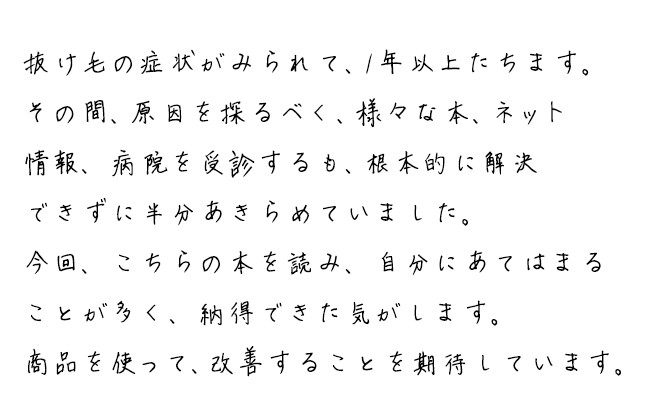 抜け毛の症状がみられて、1年以上たちます。
その間、原因を探るべく、様々な本、ネット
情報、病院を受診するも、根本的に解決
できずに半分あきらめていました。
今回、こちらの本を読み、自分にあてはまる
ことが多く、納得できた気がします。
商品を使って、改善することを期待しています。